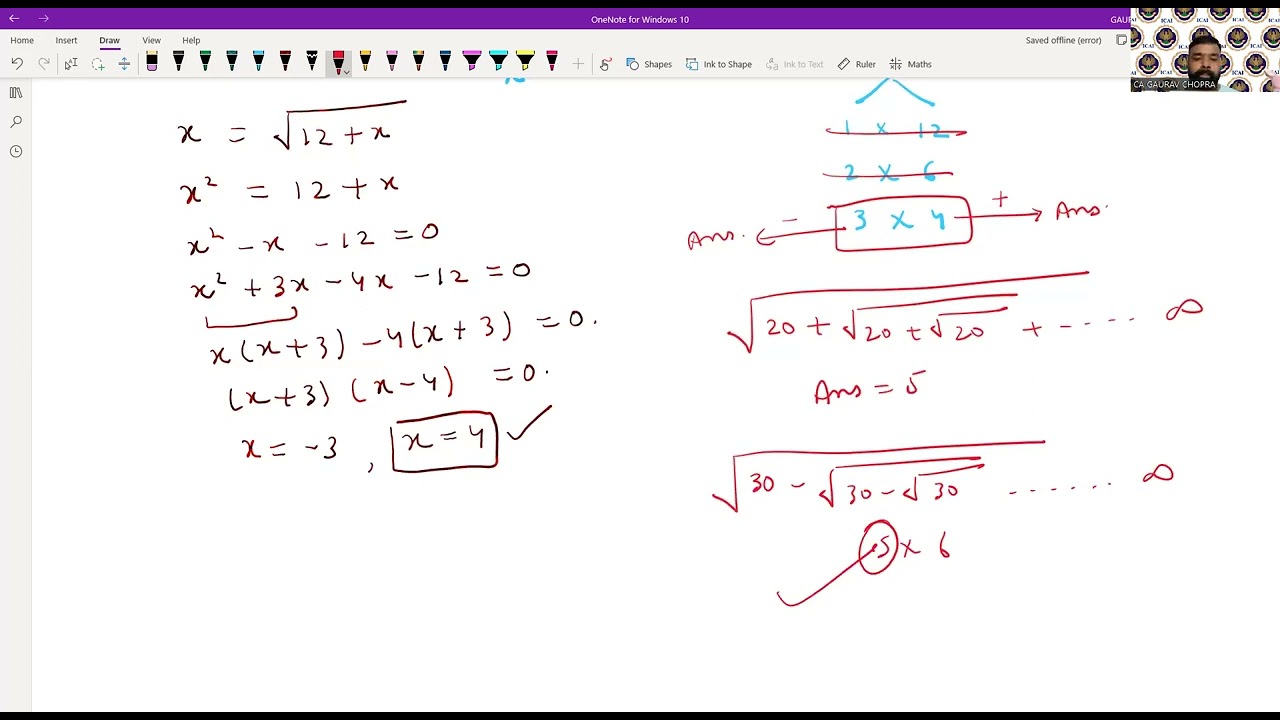 OneNote for Windows 10
GAUR
Home Insert Draw View Help
Saved offline (error)
Shapes Ink to Shape Ink to Text Ruler Maths
ICAI
CA GAURAV CHOPRA
x = √(12 + x)
x² = 12 + x
x² - x - 12 = 0
x² + 3x - 4x - 12 = 0
x(x + 3) - 4(x + 3) = 0.
(x + 3) (x - 4) = 0.
x = -3 , x = 4 ✓
1 x 12
2 x 6
Ans. ← - 3 x 4 + → Ans.
√(20 + √(20 + √20 + ..... ∞
Ans = 5
√(30 - √(30 - √30 ...... ∞
5 x 6